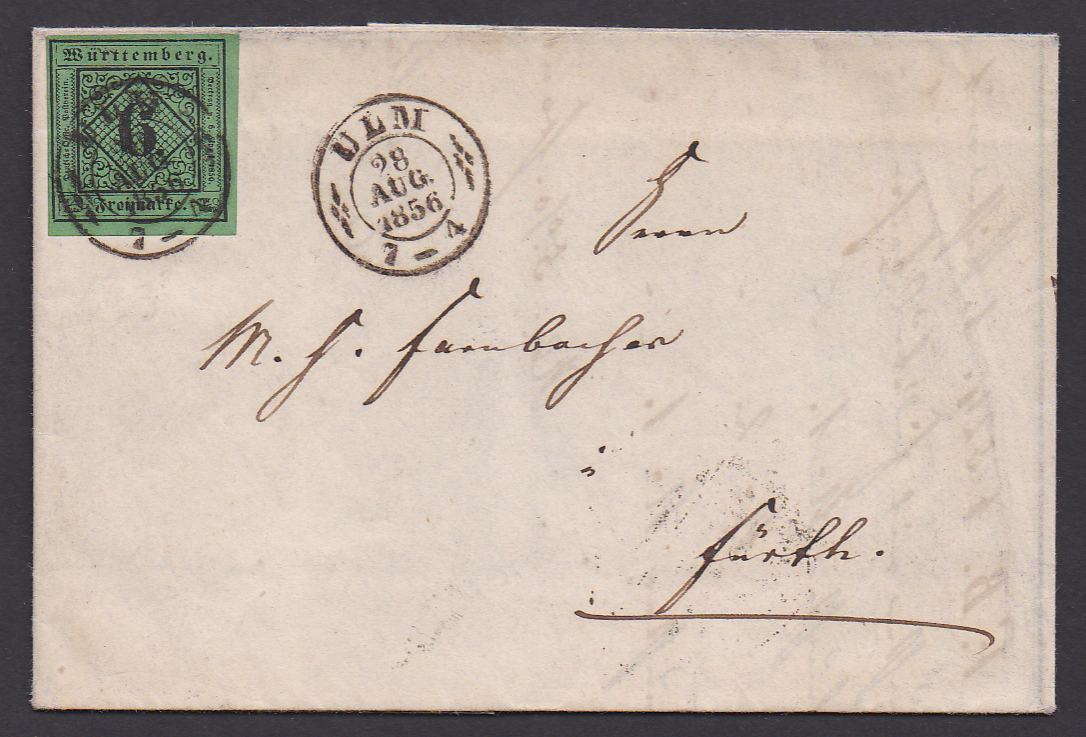 Württemberg.
6
Freimarke.
ULM
28
AUG.
1856
7 – 4
Herrn
M. H. Farnbacher
i
Fürth.